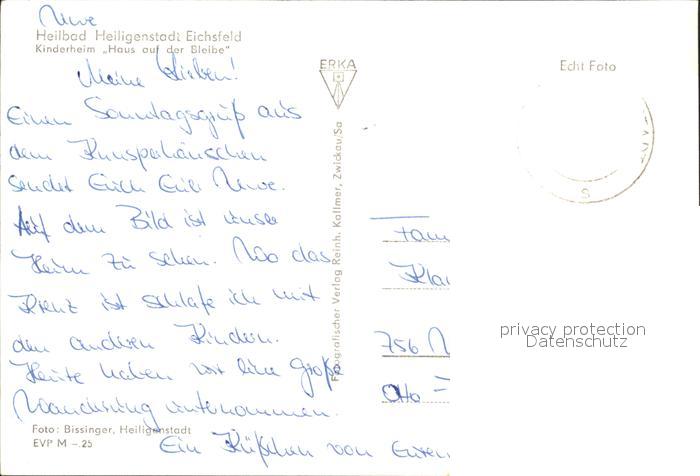 Uwe
Heilbad Heiligenstadt Eichsfeld
Kinderheim „Haus auf der Bleibe"
Meine Lieben!
Einen Sonntagsgruß aus
dem Knusperhäuschen
sendet Euch Euer Uwe.
Auf dem Bild ist unser
Heim zu sehen. Wo das
Kreuz ist schlafe ich mit
den anderen Kindern.
Heute haben wir eine große
Wanderung unternommen.
Foto: Bissinger, Heiligenstadt
EVP M –.25
Ein Küßchen von Euren
ERKA
Fotografischer Verlag Reinh. Kallmer, Zwickau/Sa
Echt Foto
S
Fam
Kla
756
Otto –
privacy protection
Datenschutz